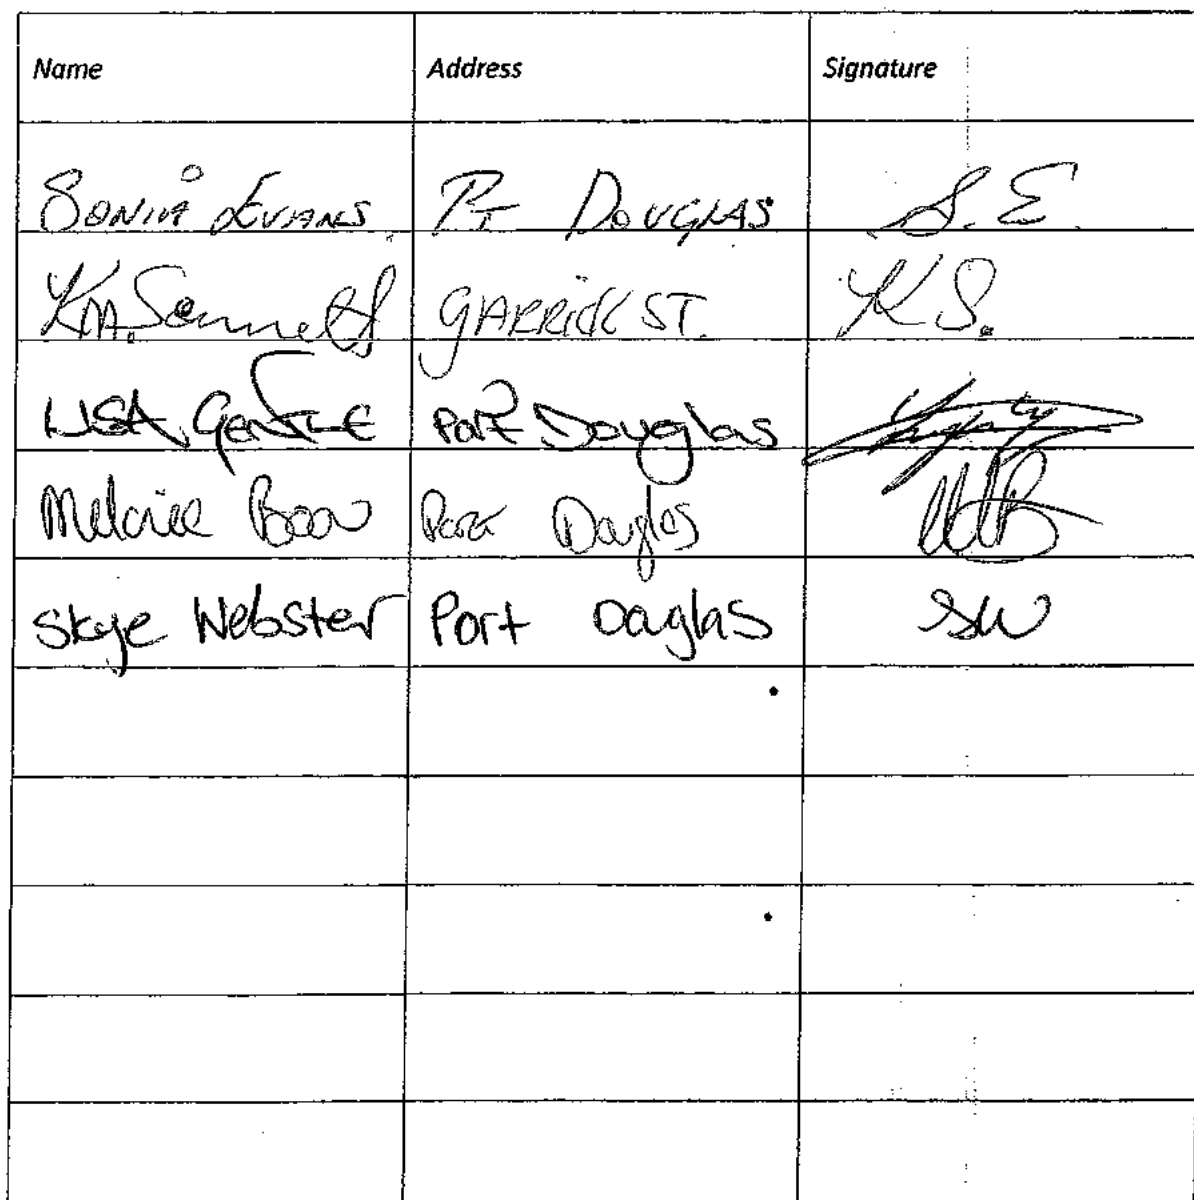 Name Address Signature
Sonia Evans PT Douglas S.E.
K.M. GARRICK ST. K S.
LISA Gentle Port Douglas
Melanie Port Douglas MB
Skye Webster Port Douglas SW